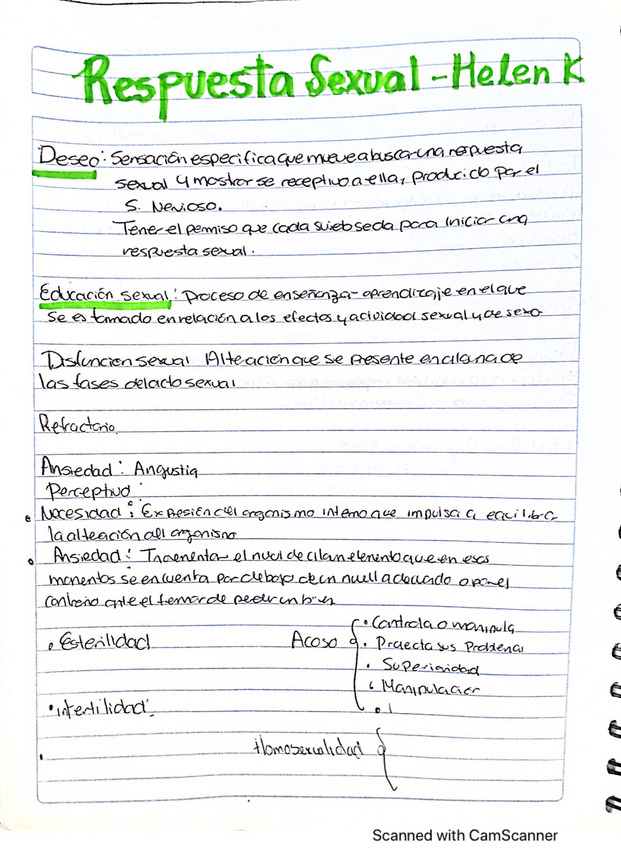 Respuesta Sexual - Helen K
Deseo: Sensación especifica que mueve a buscar una respuesta
sexual y mostrarse receptivo a ella, producido por el
S. Nervioso.
Tener el permiso que cada para iniciar una
respuesta sexual.
Educación sexual: Proceso de enseñanza-aprendizaje en el que
se es tomado en relación a los efectos y actividad sexual y de sexo
Disfuncion sexual Alteración que se presente en alguna de
las fases del acto sexual
Refractario
Ansiedad: Angustia
Perceptuo:
Necesidad: Expresión del organismo interno que impulsa a equilibrar
la alteación del organismo
Ansiedad: Incrementar el nivel de elemento que en esos
momentos se encuentra por debajo de un nivel adecuado o por el
contrario ante el temor de perder un bien
Esterilidad
Acoso
Controla o manipula
Proyecta sus Problemas
Superioridad
Manipulación
Infertilidad:
Homosexualidad
Scanned with CamScanner